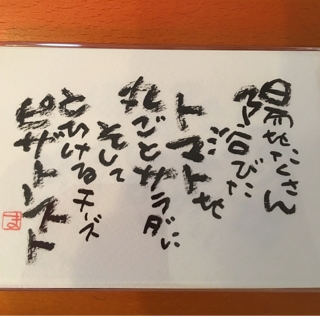 陽をたくさん
浴びた
トマトを
丸ごとサラダに
そして
とろけるチーズ
ピザトースト